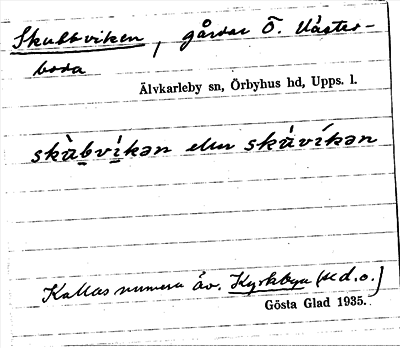 Skubbviken, gårdar Ö. Väster-
boda
Älvkarleby sn, Örbyhus hd, Upps. l.
skàbvíkən eller skàvíkən
Kallas numera äv. Kyrkbyn (s.d.o.)
Gösta Glad 1935.